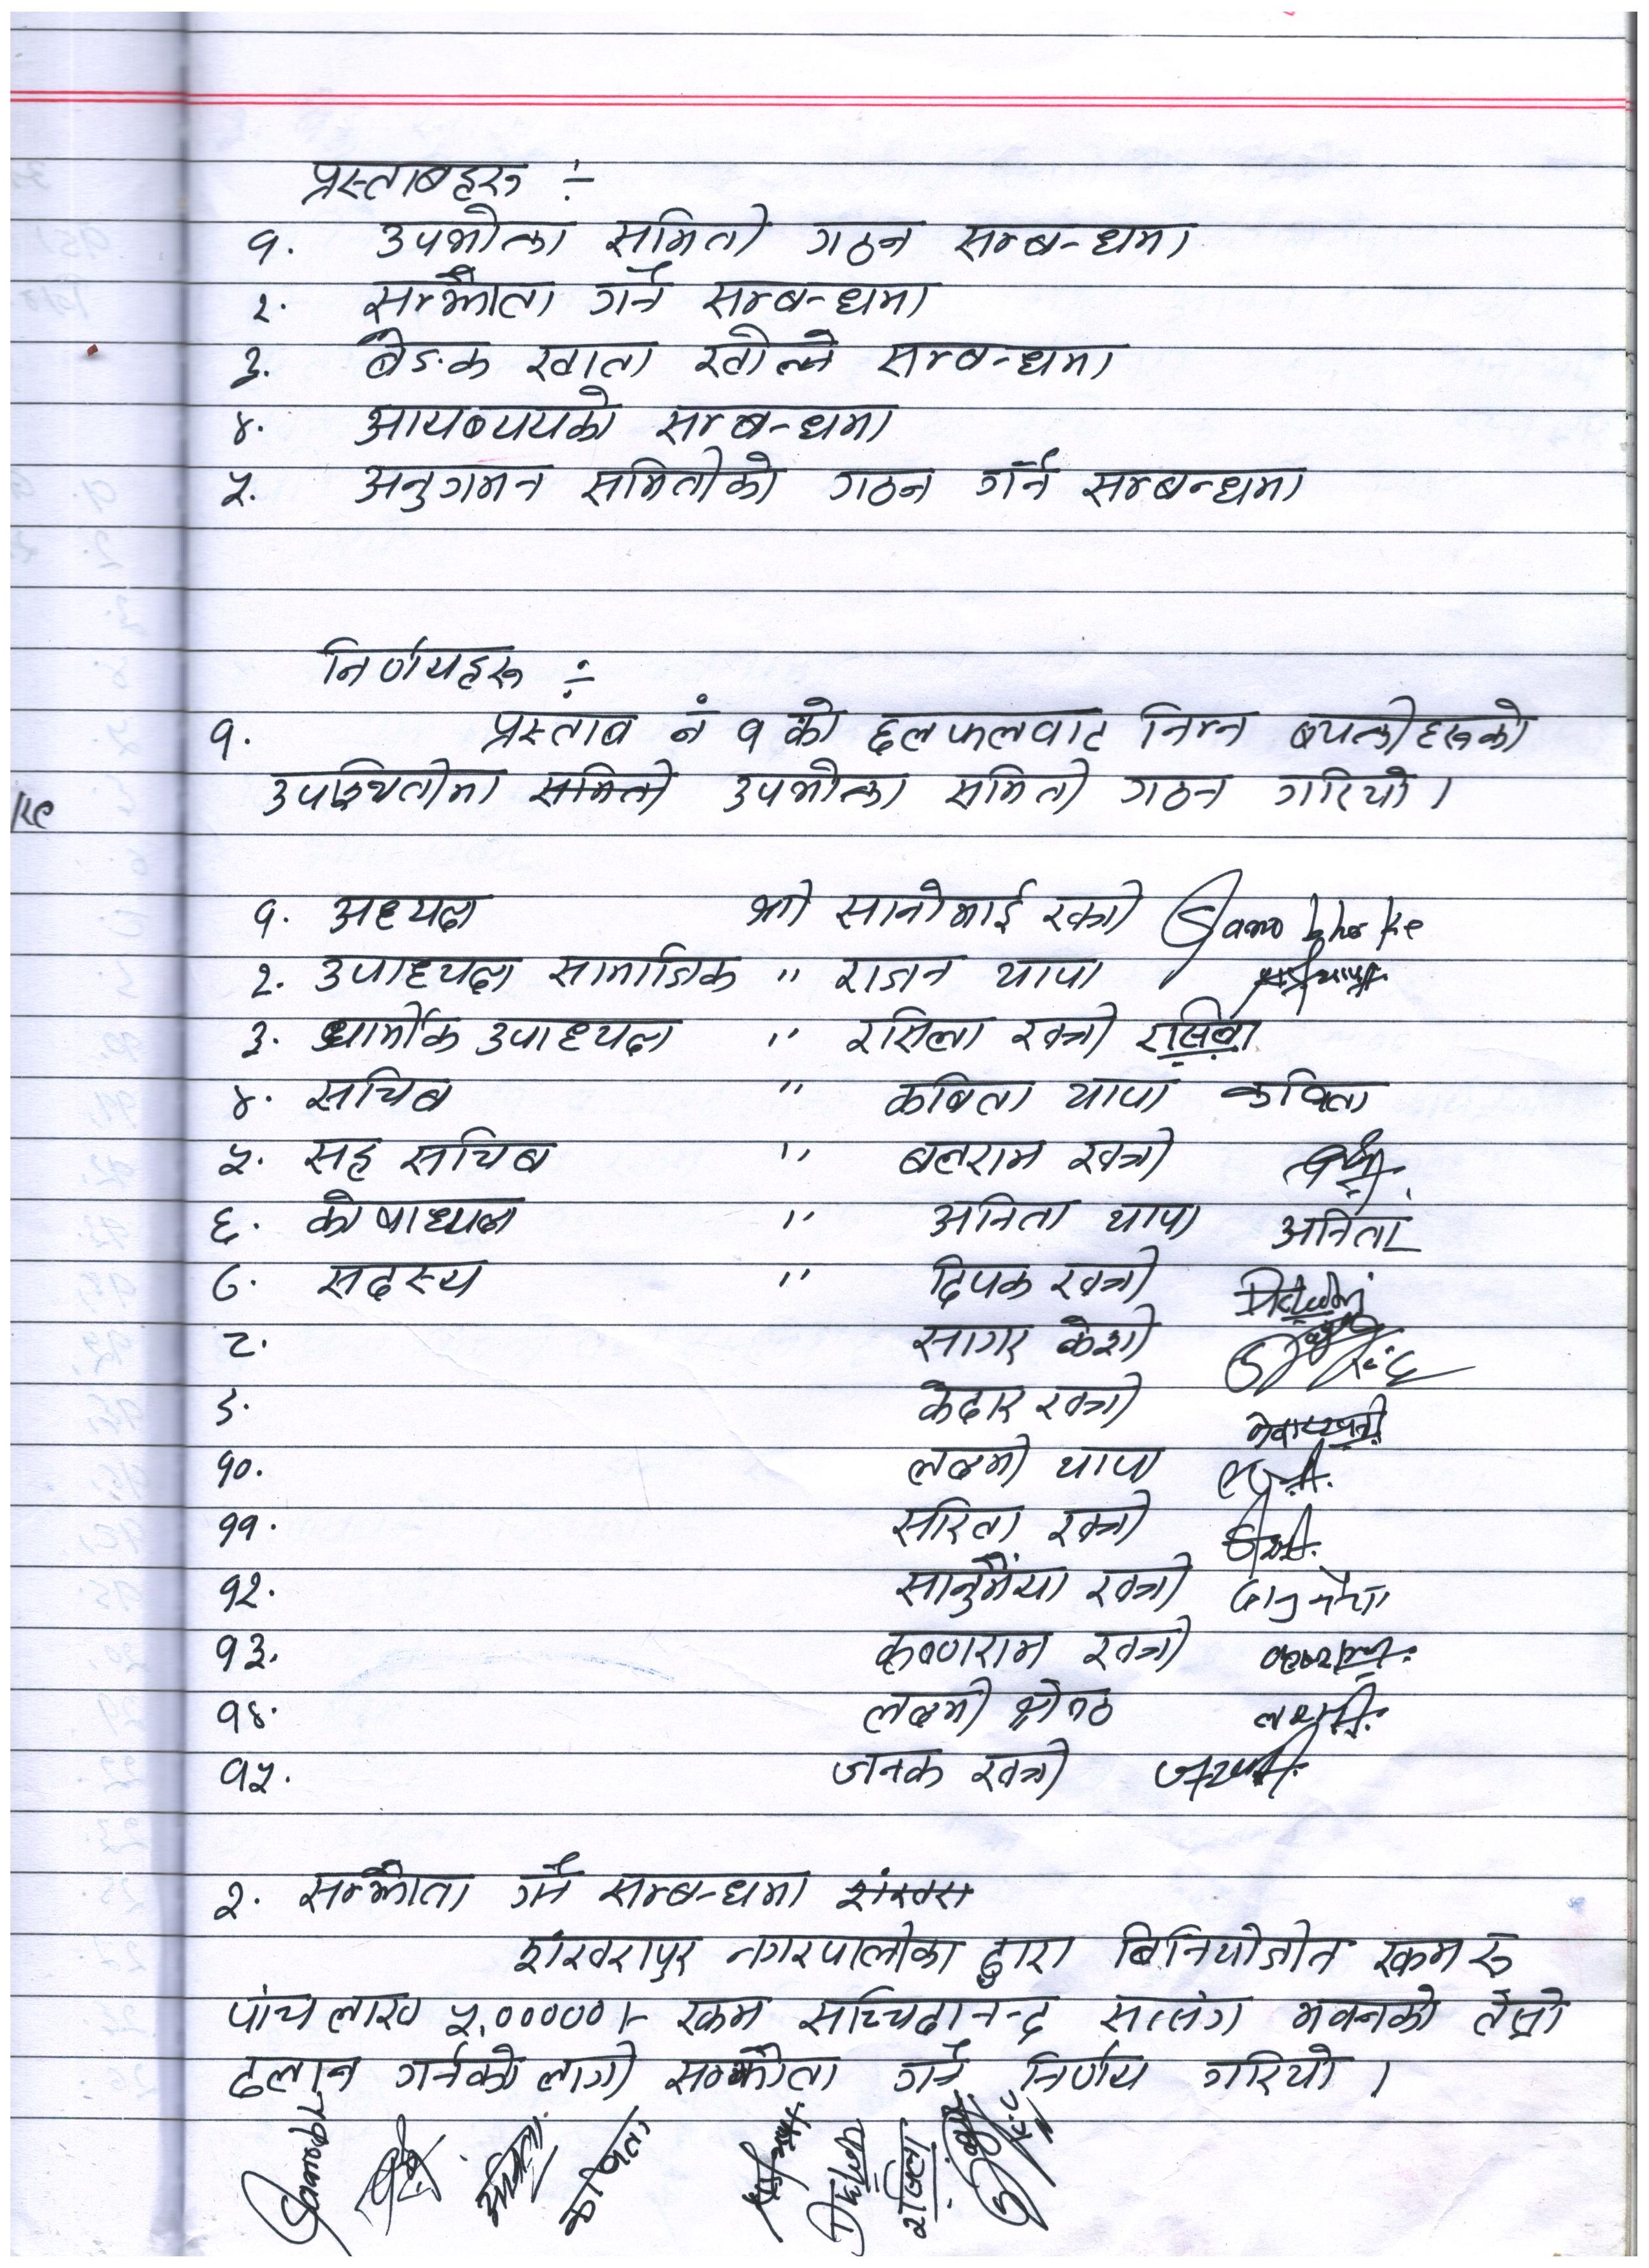 प्रस्ताबहरु ÷
१. उपभोक्ता समिती गठन सम्बन्धमा
२. सम्झौता गर्ने सम्बन्धमा
३. बैङ्क खाता खोल्ने सम्बन्धमा
४. आयब्ययको सम्बन्धमा
५. अनुगमन समितीको गठन गर्ने सम्बन्धमा
निर्णयहरु ÷
१. प्रस्ताब नं १ को छलफलवाट निम्न ब्यक्तीहरुको
उपस्थितीमा समिती उपभोक्ता समिती गठन गरियो ।
१. अध्यक्ष श्री सानोभाई खत्री
२. उपाध्यक्ष सामाजिक " राजन थापा
३. धार्मीक उपाध्यक्ष " रसिला खत्री रसिला
४. सचिब " कबिता थापा कविता
५. सह सचिब " बलराम खत्री
६. कोषाध्यक्ष " अनिता थापा अनिता
७. सदस्य " दिपक खत्री
८. सागर केशी
९. केदार खत्री
१०. लक्ष्मी थापा
११. सरिता खत्री
१२. सानुमैंया खत्री
१३. कृष्णराम खत्री
१४. लक्ष्मी श्रेष्ठ
१५. जनक खत्री
२. सम्झौता गर्ने सम्बन्धमा
शंखरापुर नगरपालीका द्वारा बिनियोजीत रकम रु
पांच लाख ५,०००००।- रकम सच्चिदानन्द सत्संग भवनको तेस्रो
ढलान गर्नको लागी सम्झौता गर्ने निर्णय गरियो ।
अनिता कविता रसिला